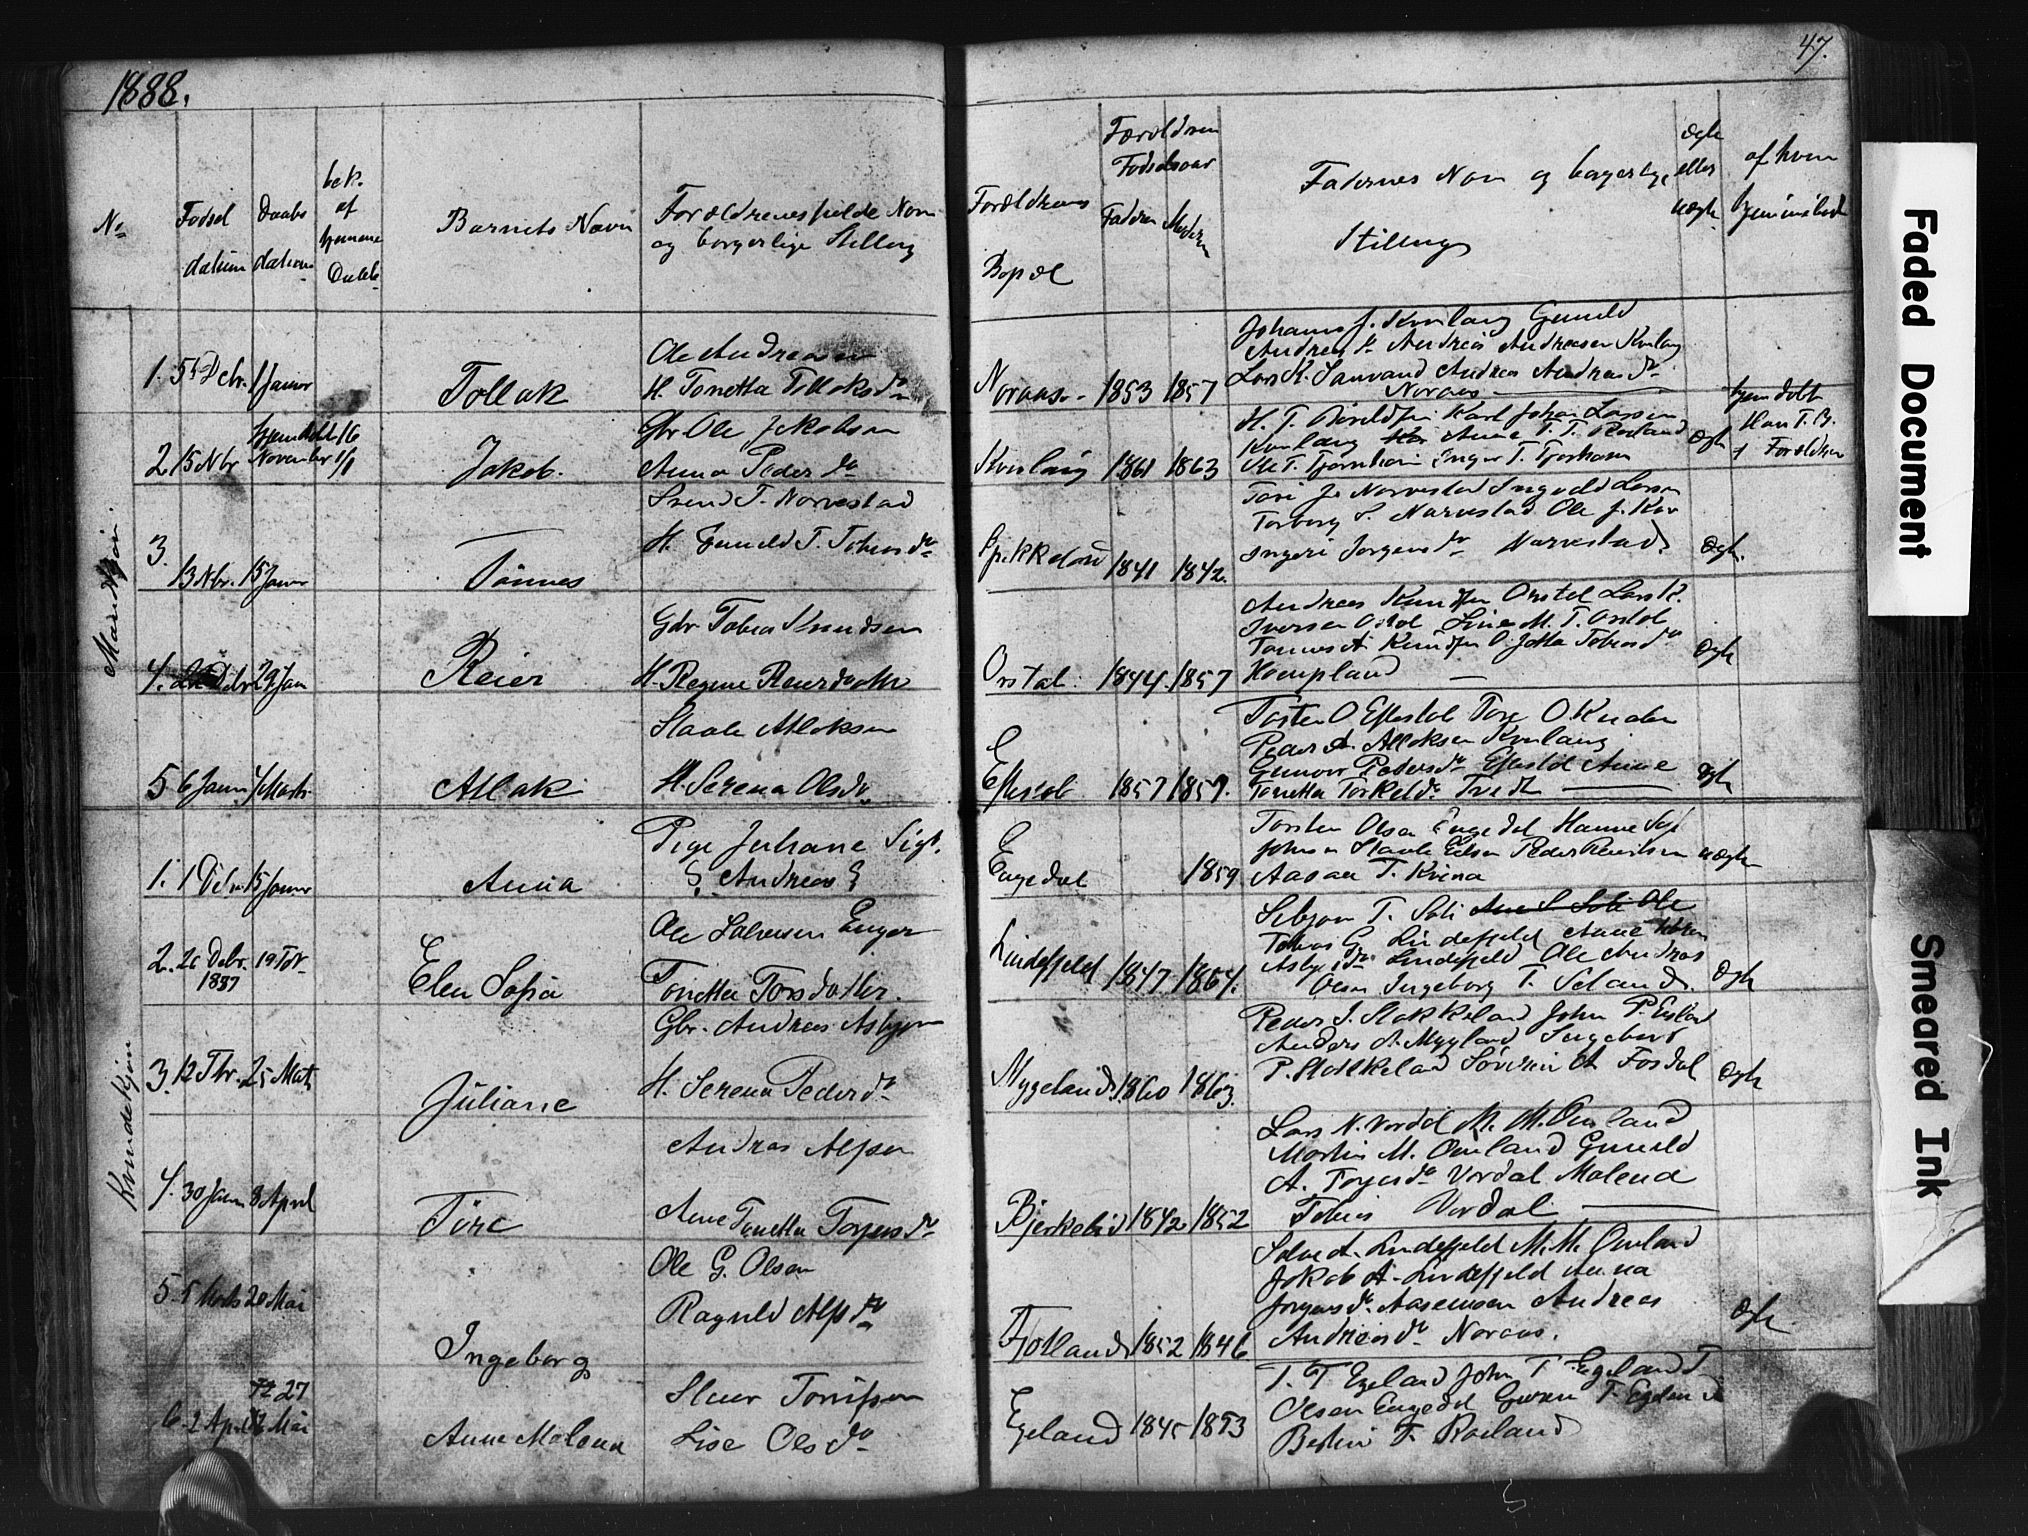 1888.
47.
No
Fødsel
datum
Daabs
datum
bek.
af
hjemme
Daab
Barnets Navn
Forældrenes fulde Navn
og borgerlige Stilling
Forældrenes
Bopæl
Forældrene
Fødselsaar
Faderen
Moderen
Fadernes Navn og borgerlige
Stilling
ægte
eller
uægte
af hvem
hjemmedøbt
Mandkjøn.
1. 5te Debr. 1 Januar
Tollak
Ole Andreasen
H. Tonetta Tollaksdr
Noraas. 1853 1857
Johannes J. Kvinlaug Gunild
Andreas Andreasen Kvinlaug
Lars K. Sanvand Andrea Andreasdr
Noraas
2 15 Nbr
hjemdøbt 16
November 1/1
Jakob.
Gbr Ole Jakobsen
Anna Pedersdr
Kvinlaug 1861 1863
Karl Johan Larsen
Kvinlaug Anne T. T. Røiland
Ole T. Tjørnhom Inger T. Tjørhom
ægte
hjemdøbt
Hans T. B.
Forældrene
3.
13 Nbr. 15 Januar
Tønnes
Svend T. Narvestad
H. Gunild T. Tobiasdr
Spikkeland 1841 1842.
Tore J. Narvestad Ingvald Larsen
Torborg S. Narvestad Ole J. Kvi
Ingeri Jørgensdr Narvestad.
ægte.
4. Debr 29 Jan
Reier
Gbr Tobias Knudsen
H. Regine Reiersdatter
Orstal. 1844. 1857
Andreas Knudsen Orstal Lars K.
Iversen Orstal Line M. T. Orstal
Tønnes A. Knudsen O. Jetta Tobiasdr
Hompland
ægte
5 6 Januar 4 Marts
Atlak
Staale Atlaksen
H. Serena Olsdr
Eftestøl 1857 1857.
Torsten O Eftestøl Tore O Kviden
Peder A. Atlaksen Kvinlaug
Gunvor Pedersdr Eftestøl Anne
Tonetta Torkelsdr. Tvedt
ægte
Kvindekjøn
1. 1 Debr 15 Januar
Anna
Pige Juliane Sigb.
S. Andreas E
Engedal 1859
Torsten Olsen Engedal Hanne Sofi
Johnsen Staale Edsen Peder Reiersen
Aasaa T. Kvina
uægte
2. 26 Debr. 19 Febr
1887
Elen Sofia
Ole Salvesen Enger
Tonetta Torsdatter.
Lindefjeld 1847 1864.
Sebjørn T. Soli Ane S Soli Ole
Tobias G. Lindefjeld Anne Karen
Asbjørnsdr Lindefjeld Ole Andreas
Olsen Ingeborg T. Seland.
ægte
3. 12 Fbr. 25 Marts
Juliane
Gbr. Andreas Asbjørn
H. Serena Pedersdr
Mygeland. 1860 1863.
Peder J. Stakkeland John P. Eiland
Anders A. Mygland Ingebort
P. Stakkeland Søverin A Fosdal
ægte
4. 30 Januar 8 April
Tore
Andreas Alfsen
Anne Tonetta Torgersdr
Bjerkelid 1842 1852
Lars N. Vordal M. M. Omland
Martin M. Omland Gunild
A. Torgersdr Vordal Malena
Tobias Vordal
5. 5 Marts 20 Mai
Ingeborg
Ole G. Olsen
Ragnild Alfsdr
Fjotland. 1852 1846
Salve A. Lindefjeld M. M. Omland
Jakob A. Lindefjeld Anna
Jørgensdr. Aasensen Andreas
Andreasdr Noraas.
ægte
6. 2 April 27
Mai
Anne Malena
Steer Tønnessen
Lise Olsdr
Egeland 1845 1853
T. T. Egeland John T Egeland T
Olsen Engedal Guren T. Egeland
Berthe F. Røiland
Faded Document
Smeared Ink